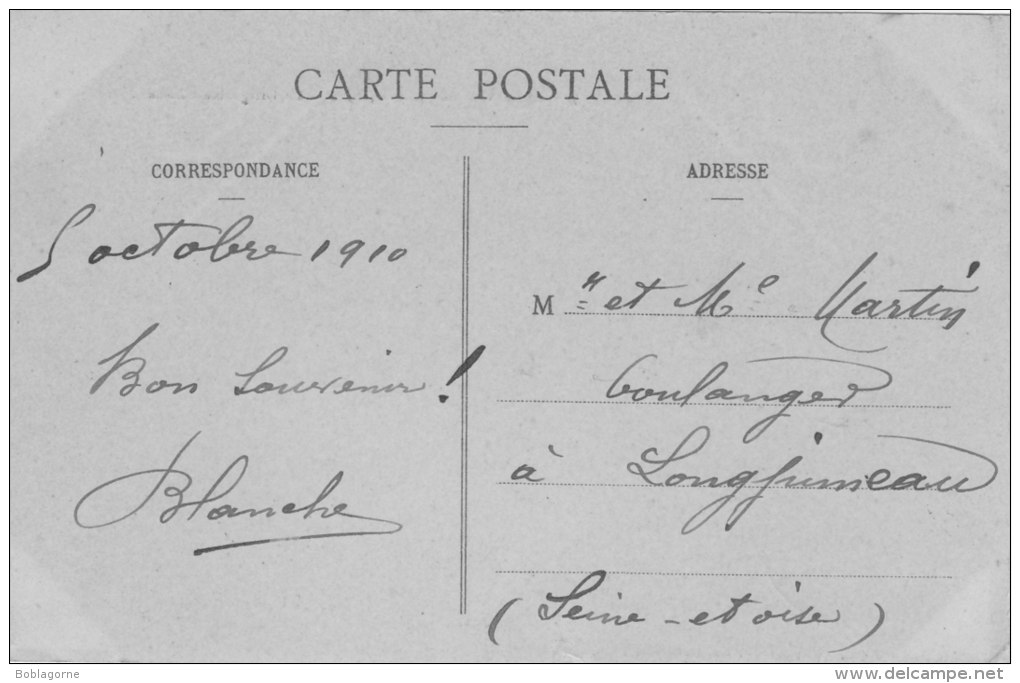 CARTE POSTALE
CORRESPONDANCE
5 octobre 1910
Bon souvenir!
Blanche
ADRESSE
M" et Me Martin
boulanger
à Longjumeau
(Seine-et oise)
Boblagorne
www.delcampe.net